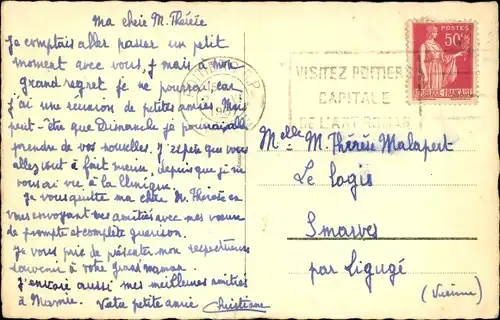 Ma chère M. Thérèse
Je comptais aller passer un petit
moment avec vous, mais à mon
grand regret je ne pourrai, car
j'ai une réunion de petites amies. Mais
peut-être que Dimanche je pourrai aller
prendre de vos nouvelles. J'espère que vous
allez tout à fait mieux, depuis que je
vous ai vue à la clinique.
Je vous quitte ma chère M. Thérèse en
vous envoyant mes amitiés avec mes vœux
de prompte et complète guérison.
Je vous prie de présenter mon respectueux
souvenir à votre grand'maman.
J'envoie aussi mes meilleures amitiés
à Mamie. Votre petite amie Christiane
POSTES
50c
RÉPUBLIQUE FRANÇAISE
VISITEZ POITIERS
CAPITALE
DE L'ART ROMAN
Melle M. Thérèse Malapert
Le logis
Smarves
par Ligugé
(Vienne)